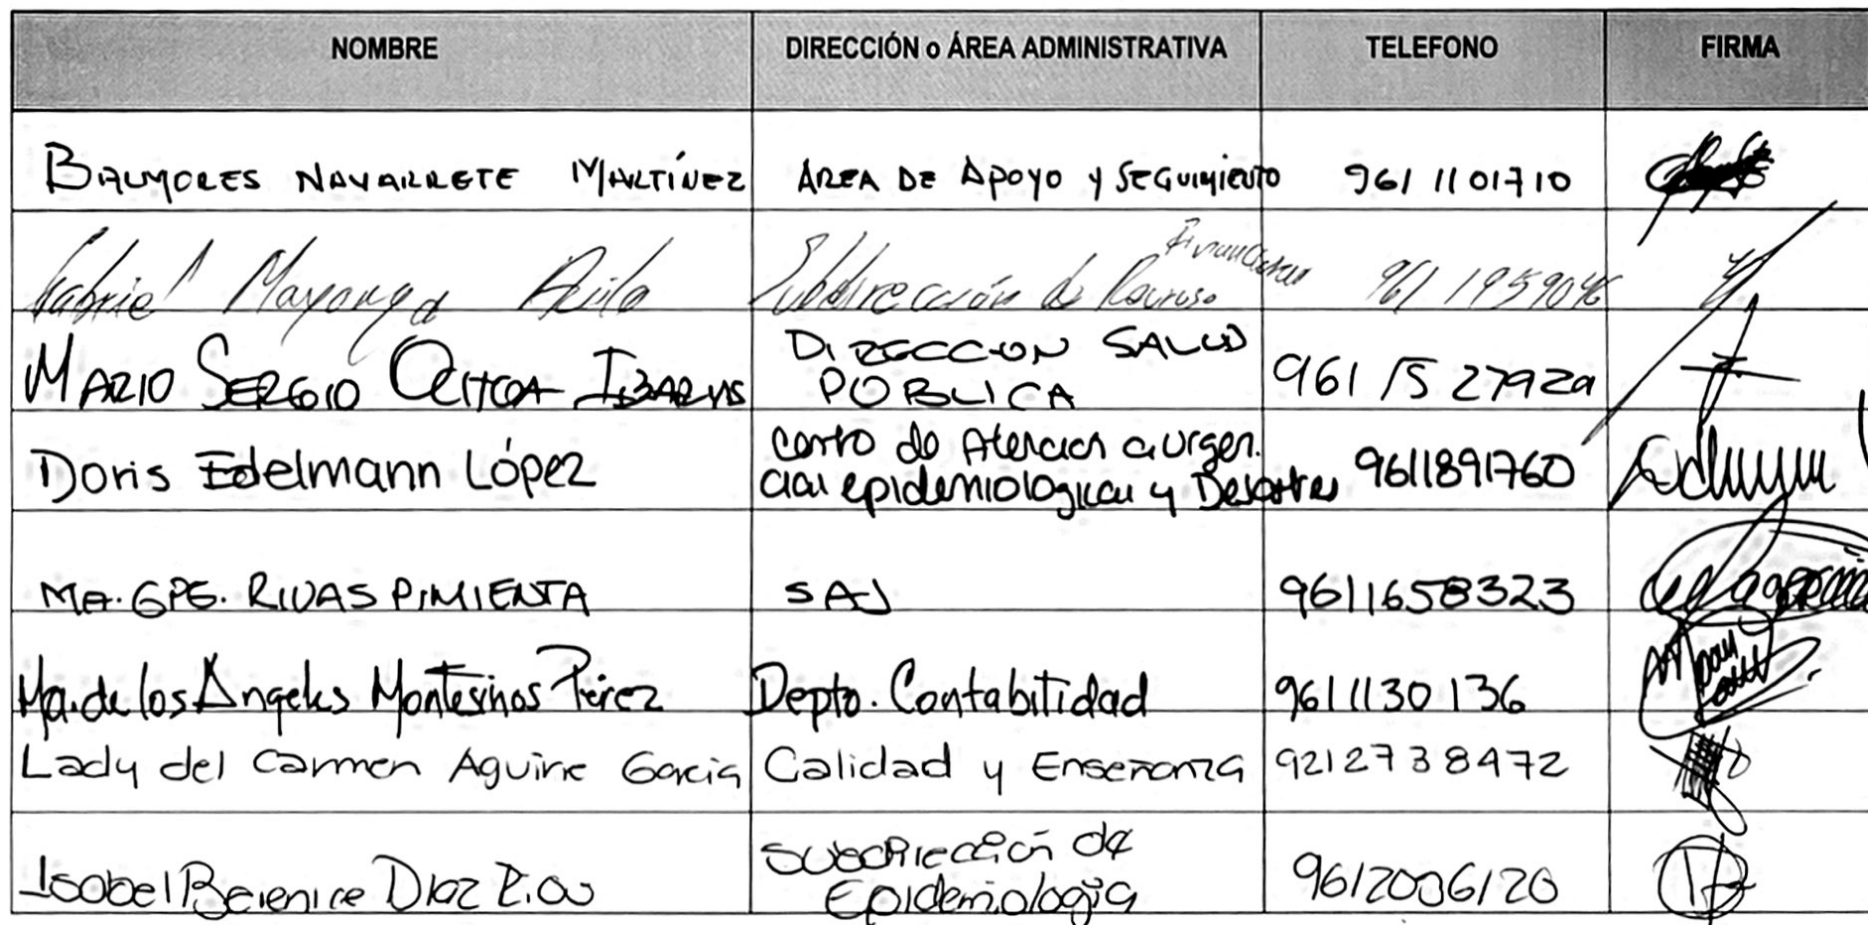 NOMBRE DIRECCIÓN o ÁREA ADMINISTRATIVA TELEFONO FIRMA
NAVARRETE MARTÍNEZ AREA DE APOYO Y SEGUIMIENTO 961 1101710
Gabriel Mayorga Subdirección de Recurso Financieros 961 1959046
MARIO SERGIO OCHOA DIRECCION SALUD
PÚBLICA 961 15 27929
Doris Edelmann López de Atencion a urgen.
cias epidemiologicas y Desastres 9611891760
MA. GPE. RIVAS PIMIENTA SAJ 9611658323
Ma. de los Angeles Montesinos Pérez Depto. Contabilidad 9611130136
Lady del Carmen Aguirre Garcia Calidad y Enseñanza 9212738472
Isabel Berenice Diaz Rios Subdirección de
Epidemiologia 9612006120